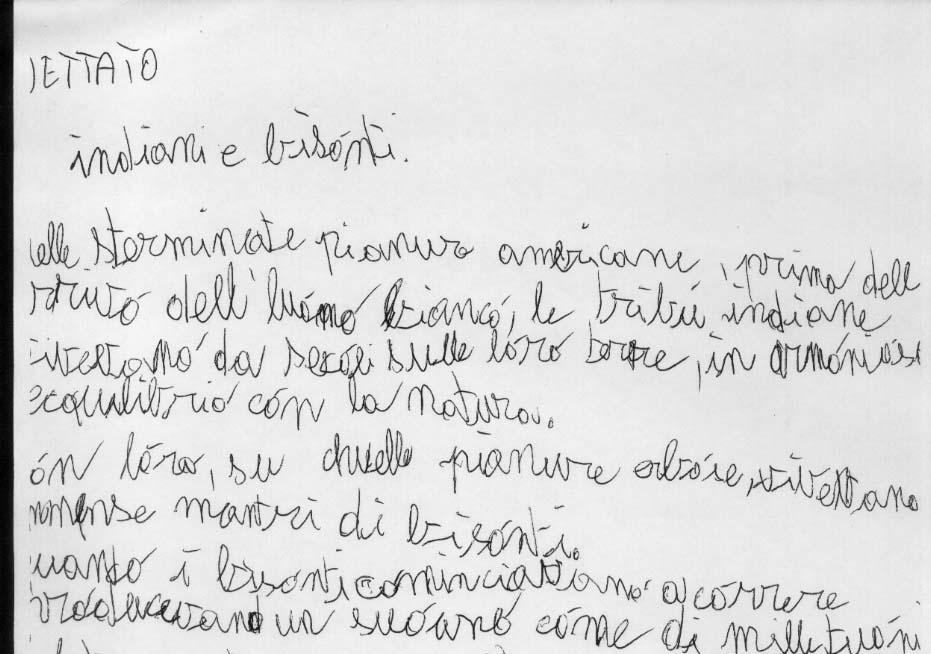 DETTATO
indiani e bisonti.
nelle sterminate pianure americane, prima dell
arrivo dell'luomo bianco, le tribù indiane
vivevano da secoli sulle loro terre, in armonioso
ecqualibrio con la natura.
on loro, su chuelle pianure erbose, vivevano
immense mantri di bisonti.
quando i bisonti cominciavano a correre
producevano un suouno come di mille tuoni